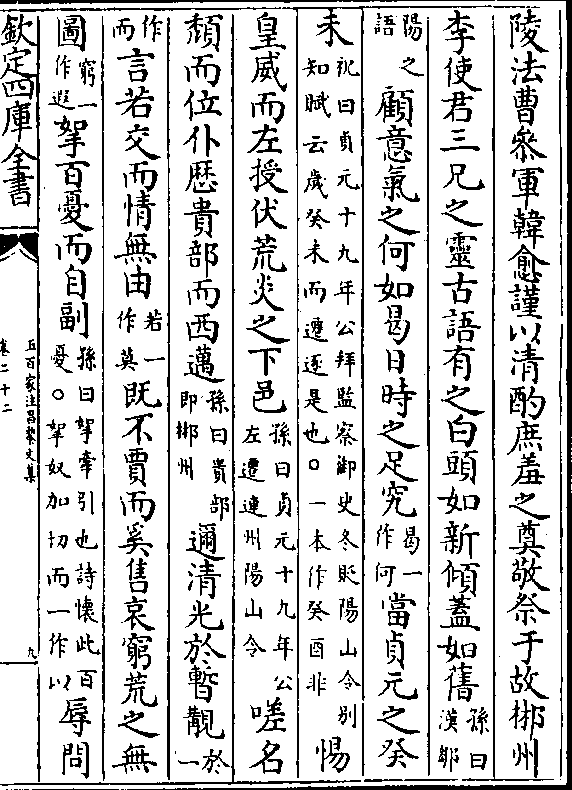 陵法曹叅軍韓愈謹以清酌庶羞之奠敬祭于故郴州
李使君三兄之靈古語有之白頭如新傾蓋如舊孫曰漢鄒
陽之語顧意氣之何如曷日時之足究曷一作何當貞元之癸
未祝曰貞元十九年公拜監察御史冬貶陽山令别知賦云歲癸未而遷逐是也〇一本作癸酉非惕
皇威而左授伏荒炎之下邑孫曰貞元十九年公左遷連州陽山令嗟名
頽而位仆歴貴部而西邁孫曰貴部即郴州邇清光於暫覿於一
作而言若交而情無由若一作莫既不賈而奚售哀窮荒之無
圖窮一作遐挐百憂而自副孫曰挐牽引也詩懷此百憂〇挐奴加切而一作以辱問
欽定四庫全書
五百家注昌黎文集
卷二十二
九